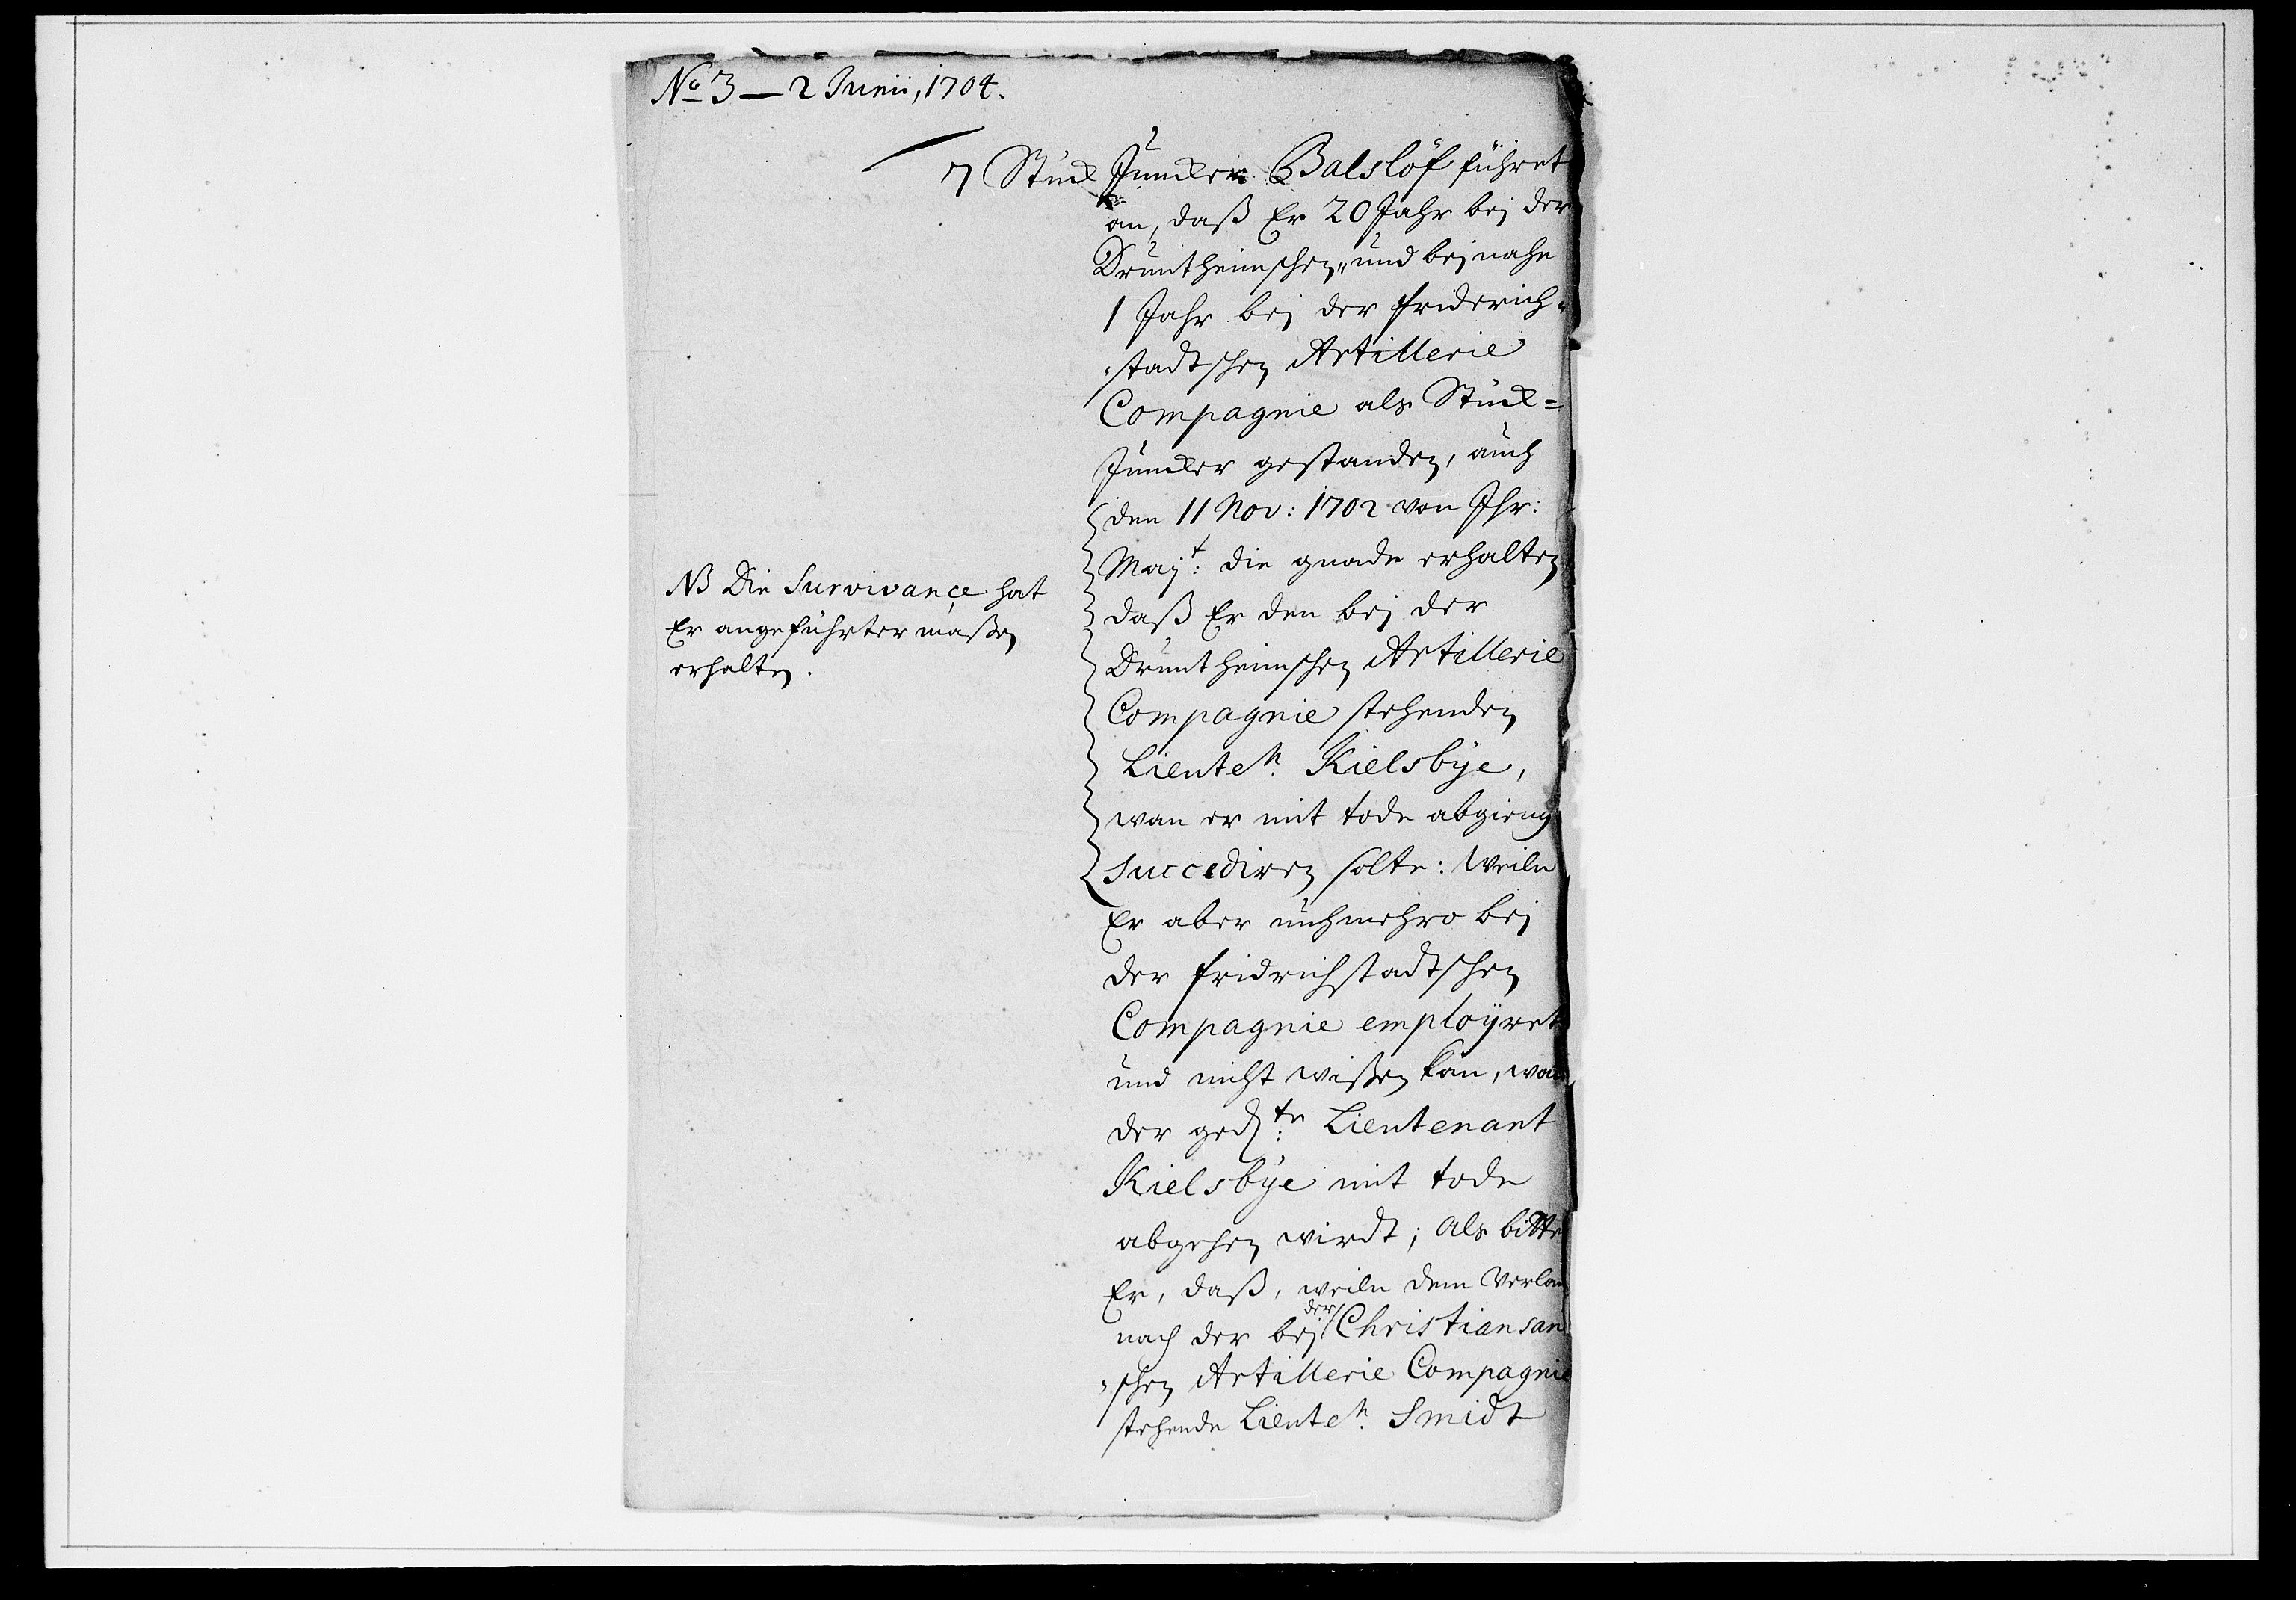 No 3 — 2 Junii, 1704.
7 Stück Juncker Balslöf führet
an, daß Er 20 Jahr bej der
Druntheimschen „und bejnahe
1 Jahr bej der friderich-
-stadtschen Artillerie
Compagnie als Stück=
Juncker gestanden, auch
den 11 Nov: 1702 von Ihr:
Majt: die gnade erhalten
daß Er den bej der
Druntheimschen Artillerie
Compagnie stehenden
Lieuten. Kielsbÿe,
wan er mit tode abgieng
succediren solte: Weiln
Er aber nuhmehro bej
der fridrichstadtschen
Compagnie employret
und nicht wißen kan, wan
der gedte: Lieutenant
Kielsbÿe mit tode
abgehen wirdt; als bitte
Er, daß, weiln dem Verlau
nach der bej der Christiansan
-schen Artillerie Compagnie
stehende Lieuten. Smidt
NB Die Survivançe hat
Er angeführtermaßen
erhalten.